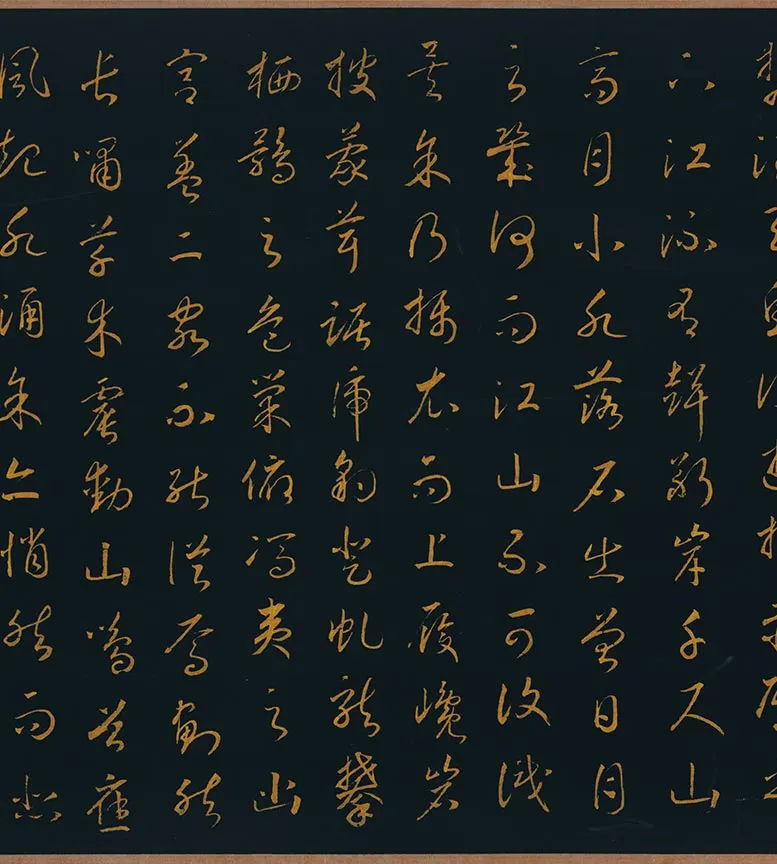 下江流有聲斷岸千尺山
高月小水落石出曾日月
之幾何而江山不可復識
矣余乃攝衣而上履巉岩
披蒙茸踞虎豹登虬龍攀
栖鶻之危巢俯馮夷之幽
宮蓋二客不能從焉劃然
長嘯草木震動山鳴谷應
風起水涌余亦悄然而悲